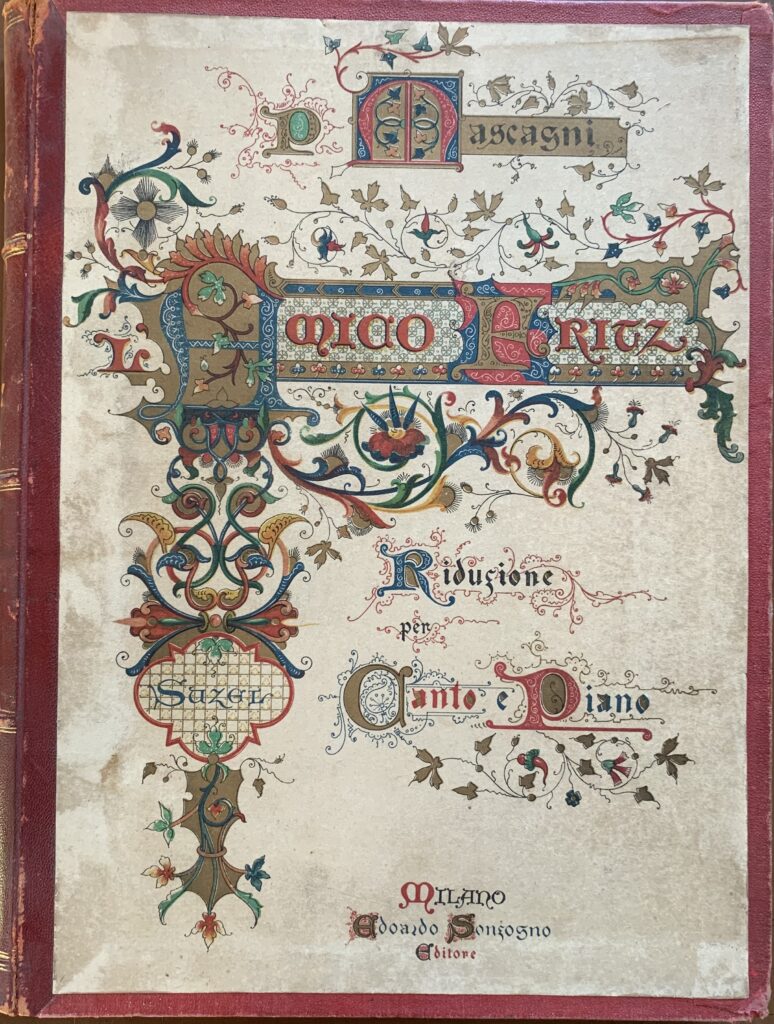 P Mascagni
L'Amico Fritz
Riduzione
per
Canto e Piano
Suzel
Milano
Edoardo Sonzogno
Editore